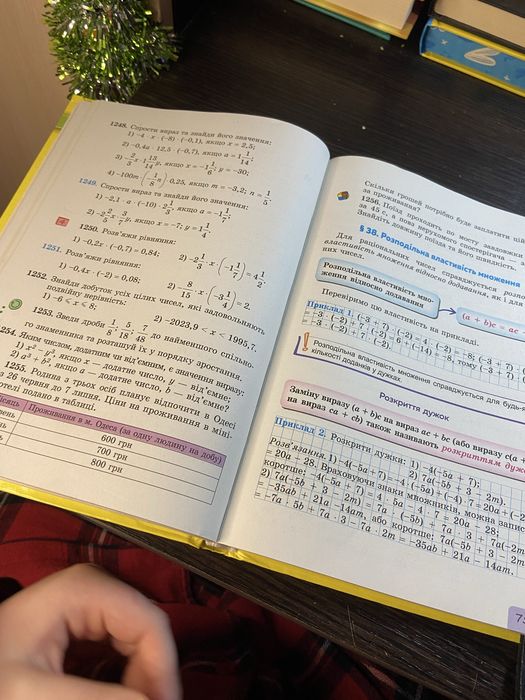 1248. Спрости вираз та знайди його значення:
1) -4 · x · (-8) · (-0,1), якщо x = 2,5;
2) -0,4a · 12,5 · (-0,7), якщо a = 1 1/14;
3) -2/3 x · 1 13/14 y, якщо x = -1 1/6, y = -30;
4) -100m · (-1/8 n) · 0,25, якщо m = -3,2; n = 1/5.
1249. Спрости вираз та знайди його значення:
1) -2,1 · a · (-10) · 2 1/3, якщо a = -1 1/7;
2) -2 2/5 x · 3/7 y, якщо x = -7; y = 1 1/4.
1250. Розв'яжи рівняння:
1) -0,2x · (-0,7) = 0,84;
2) -2 1/3 · x · (-1 1/7) = 4 1/2.
1251. Розв'яжи рівняння:
1) -0,4x · (-2) = 0,08;
2) -8/15 · x · (-3 3/4) = 2.
1252. Знайди добуток усіх цілих чисел, які задовольняють
подвійну нерівність:
1) -6 < x < 8;
2) -2023,9 < x < 1995,7.
1253. Зведи дроби 1/8, 5/18, 7/48 до найменшого спільно-
го знаменника та розташуй їх у порядку зростання.
254. Яким числом, додатним чи від'ємним, є значення виразу:
1) x² · y³, якщо x — додатне число, y — від'ємне;
2) a³ + b², якщо a — додатне число, b — від'ємне?
1255. Родина з трьох осіб планує відпочити в Одесі
з 26 червня до 7 липня. Ціни на проживання в міні-
готелі подано в таблиці.
Місяць
Проживання в м. Одеса (за одну людину на добу)
600 грн
700 грн
800 грн
Скільки грошей потрібно буде заплатити ція
за проживання?
1256. Поїзд проходить по мосту завдовжки
за 45 с, а повз нерухомого спостерігача — за
Знайдіть довжину поїзда та його швидкість.
§ 38. Розподільна властивість множення
Для раціональних чисел справджується розпо
властивість множення відносно додавання, як і для
них чисел.
Розподільна властивість мно-
ження відносно додавання
(a + b)c = ac
Перевіримо цю властивість на прикладі.
Приклад 1. (-3 + 7) · (-2) = 4 · (-2) = -8; (-3 + 7) · (
= -3 · (-2) + 7 · (-2) = 6 + (-14) = -8, тому (-3 + 7)
= -3 · (-2) + 7 · (-2).
Розподільна властивість множення справджується для будь-я
кількості доданків у дужках.
Розкриття дужок
Заміну виразу (a + b)c на вираз ac + bc (або виразу c(a +
на вираз ca + cb) також називають розкриттям дуж
Приклад 2. Розкрити дужки: 1) -4(-5a + 7);
2) 7a(-5b + 3 - 2m).
Розв'язання. 1) -4(-5a + 7) = -4 · (-5a) + (-4) · 7 = 20a + (-2
= 20a - 28. Враховуючи знаки множників, можна запис
коротше: -4(-5a + 7) = 4 · 5a - 4 · 7 = 20a - 28;
2) 7a(-5b + 3 - 2m) = 7a · (-5b) + 7a · 3 + 7a(-2m
= -35ab + 21a - 14am, або коротше: 7a(-5b + 3 - 2m
= -7a · 5b + 7a · 3 - 7a · 2m = -35ab + 21a - 14am.